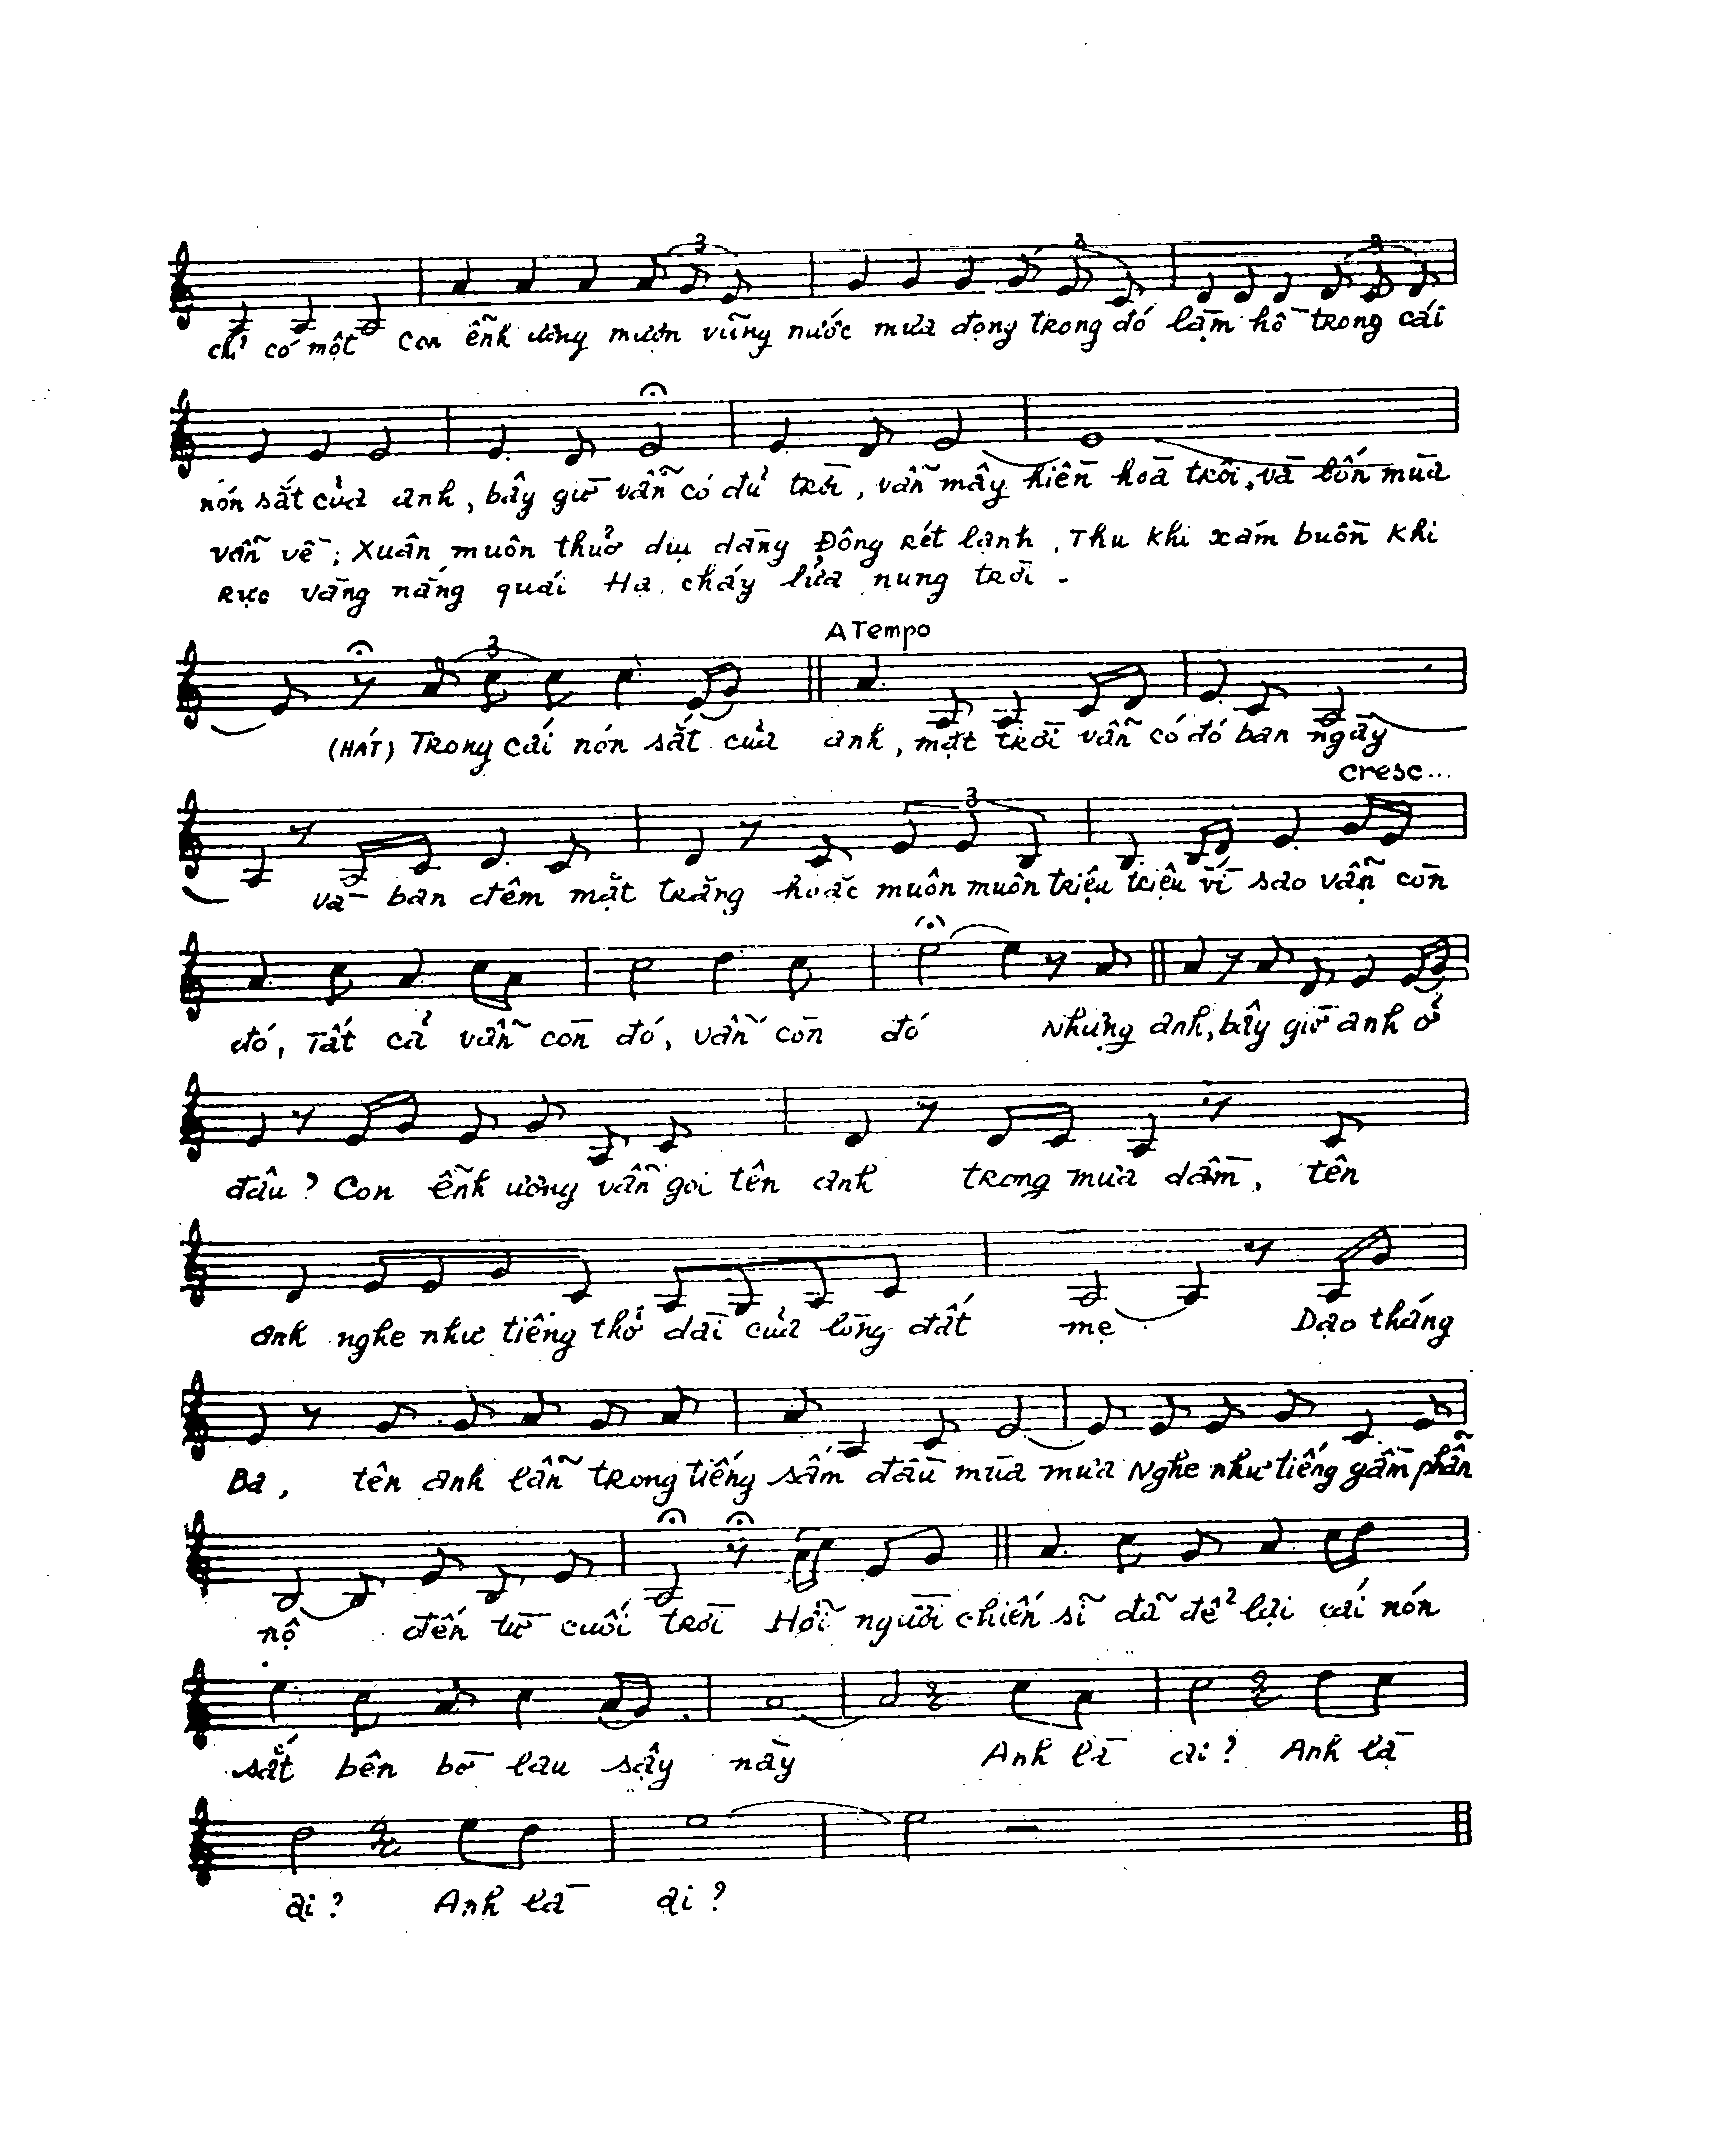 chỉ có một con ễnh ương mượn vũng nước mưa đọng trong đó làm hồ trong cái
nón sắt của anh, bây giờ vẫn có đủ trời, vẫn mây hiền hoà trôi, và bốn mùa
vẫn về; Xuân muôn thuở dịu dàng Đông rét lạnh, Thu khi xám buồn khi
rực vàng nắng quái Hạ cháy lửa nung trời -
A Tempo
(HÁT) Trong cái nón sắt của anh, mặt trời vẫn có đó ban ngày
cresc...
và ban đêm mặt trăng hoặc muôn muôn triệu triệu vì sao vẫn còn
đó, Tất cả vẫn còn đó, vẫn còn đó Nhưng anh, bây giờ anh ở
đâu? Con ễnh ương vẫn gọi tên anh trong mưa dầm, tên
anh nghe như tiếng thở dài của lòng đất mẹ Dạo tháng
Ba, tên anh lẫn trong tiếng sấm đầu mùa mưa Nghe như tiếng gầm phẫn
nộ đến từ cuối trời Hỡi người chiến sĩ đã để lại cái nón
sắt bên bờ lau sậy này Anh là ai? Anh là
ai? Anh là ai?